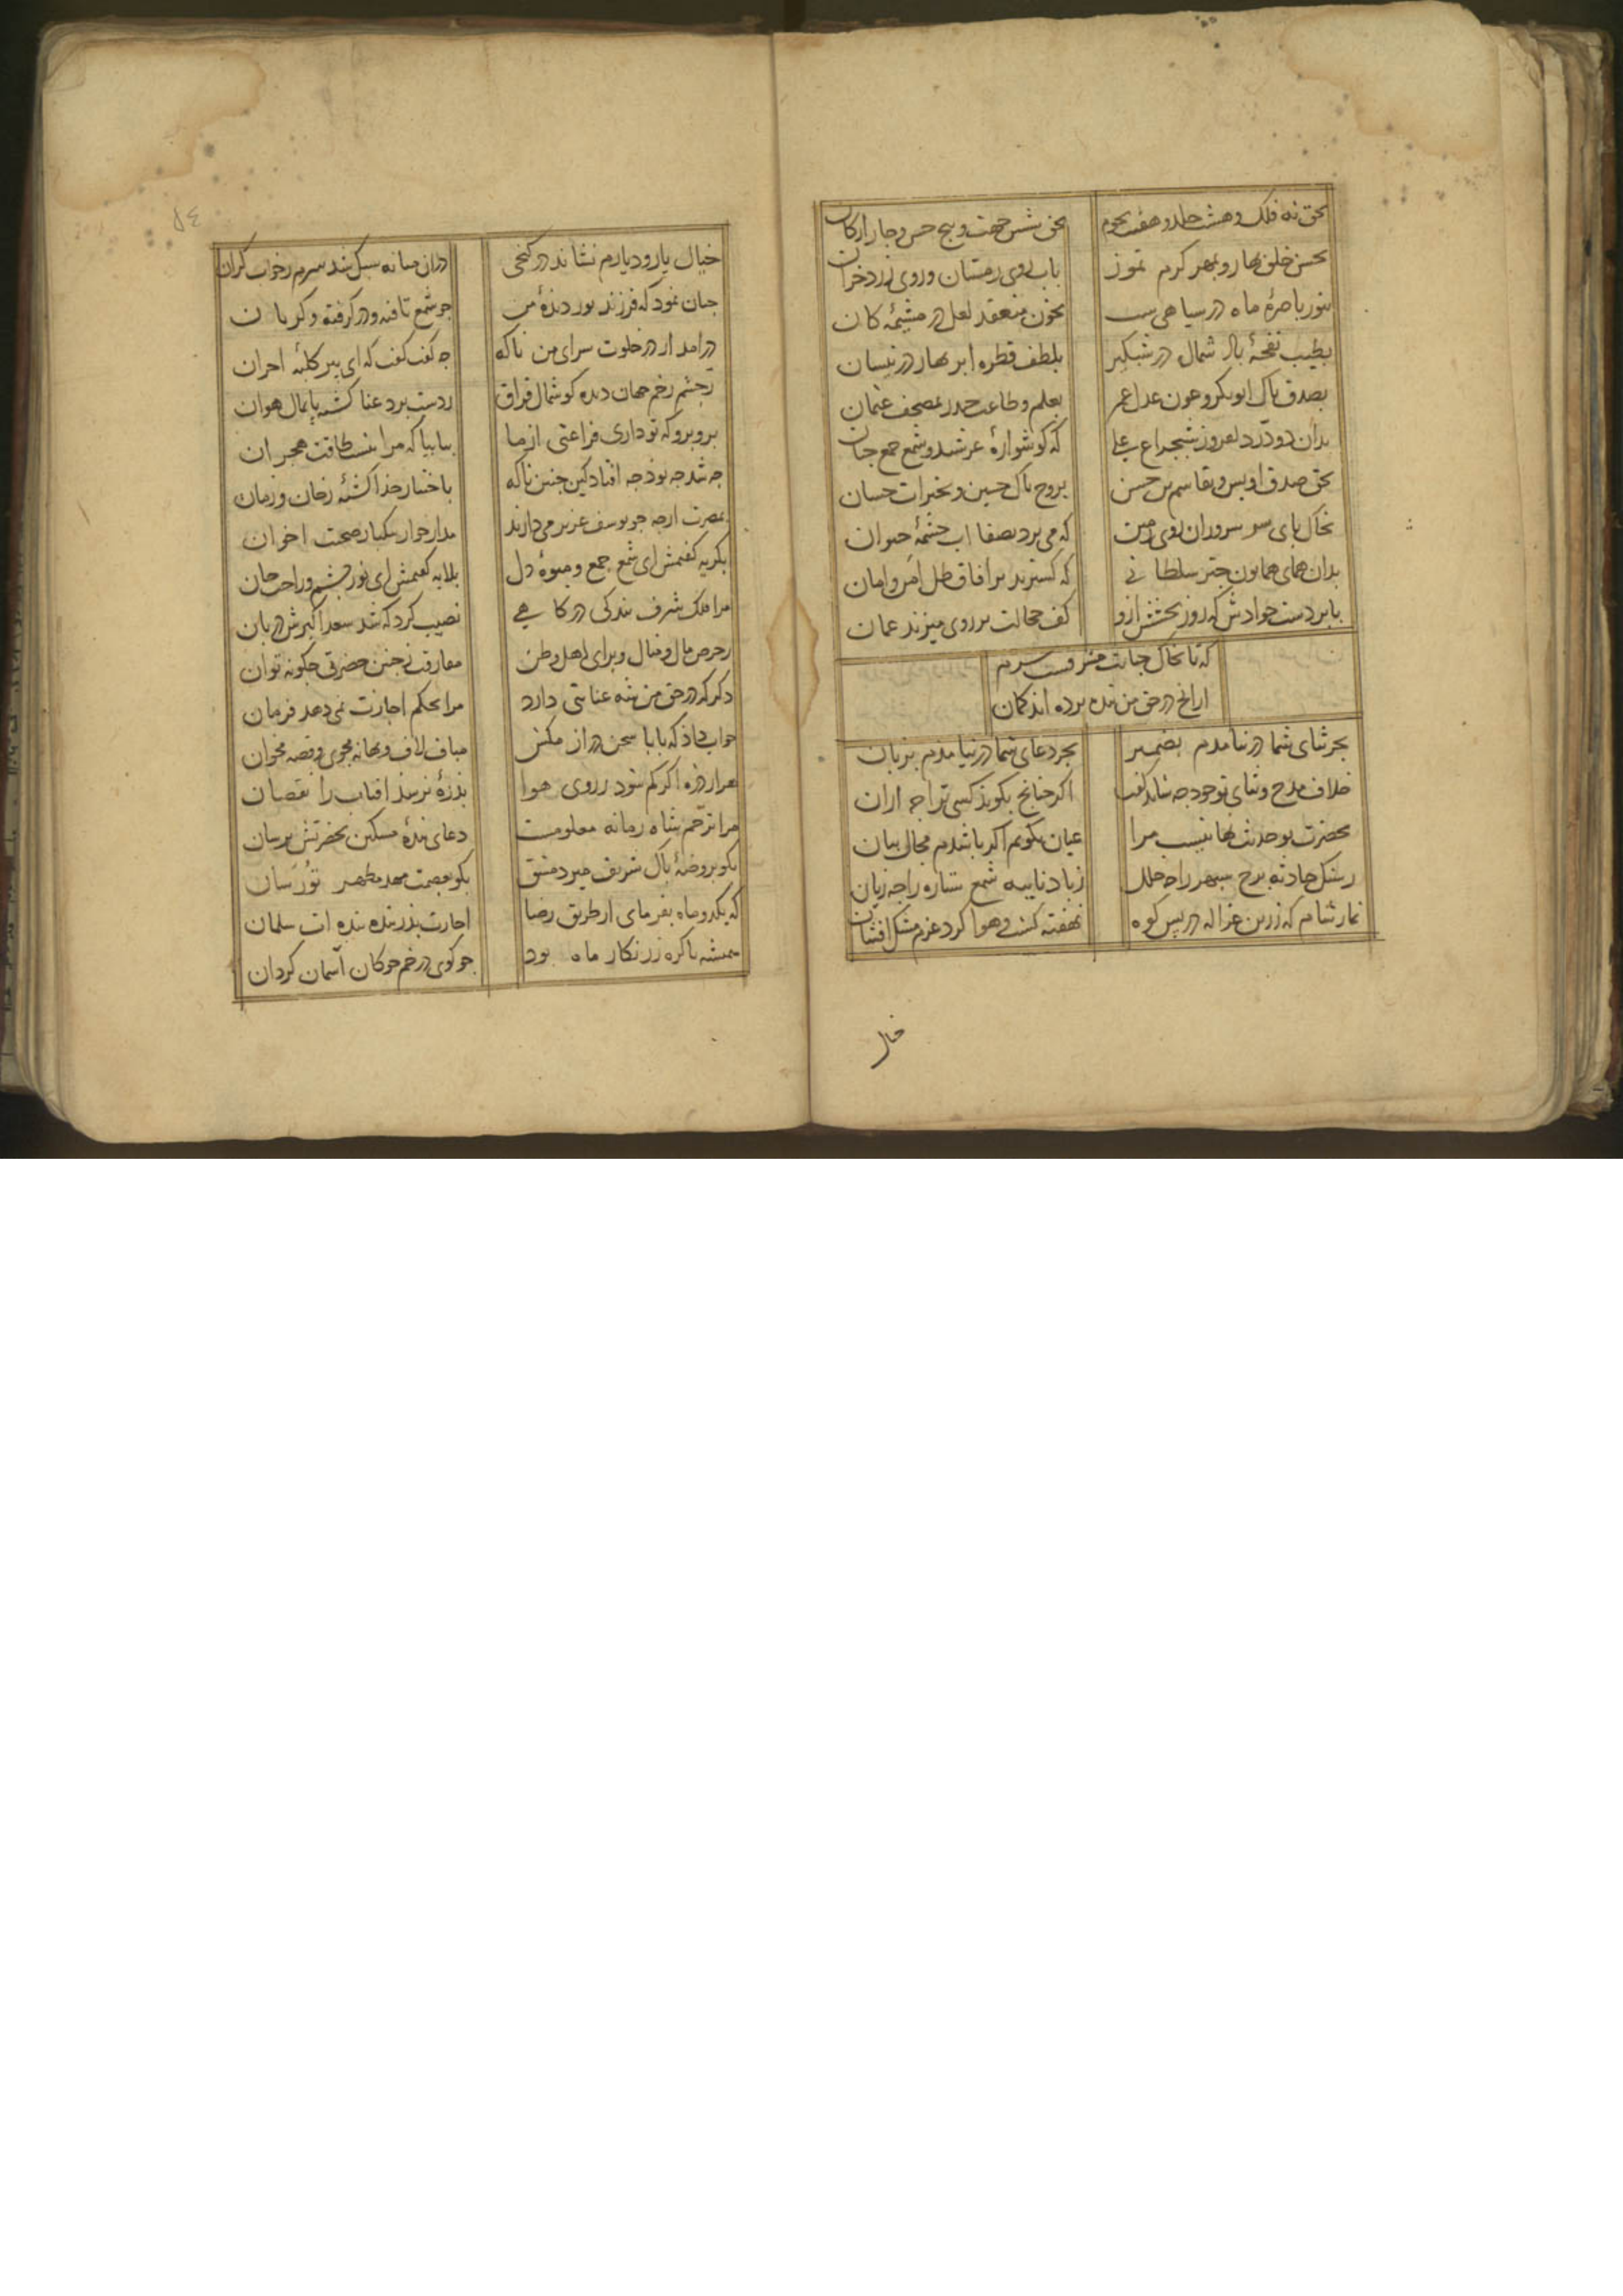 بحق نه فلک و هشت خلد و هفت نجوم
بحق شش جهت و پنج حس و چار ارکان
بحسن خلق بهار و بمهر کرم تموز
باب روی زمستان و روی زرد خزان
بنور باصرهٔ ماه در سیاهی شب
بخون منعقد لعل در مشیمه کان
بطیب نفحهٔ باد شمال در شبکیر
بلطف قطره ابر بهار در نیسان
بصدق پاک ابوبکر و عون عدل عمر
بعلم و طاعت حیدر بمصحف عثمان
بدان دو درّ دلفروز شبچراغ علی
که کوشوارهٔ عرشند و شمع جمع جنان
بحق صدق اویس و بقاسم بن حسن
بروح پاک حسین و بخیرات حسان
بخاک پای سر سروران روی زمین
که می برد بصفا اب چشمهٔ حیوان
بدان همای همایون چتر سلطانی
که کسترند بر افاق ظل امن و امان
بابر دست جوادش که روز بخشش ازو
کف خجالت بر روی میزند عمان
که تا بخاک جنابت مشرفست سرم
ازانچ در حق من بنده برده اند کمان
بجز ثنای شما در نیامدم بضمیر
بجز دعای شما در نیامدم بزبان
خلاف مدح و ثنای تو خود چه شاید کفت
اکر چنانچ بکوید کسی ترا چه ازان
بحضرت تو حدیث نهانیست مرا
عیان بکویم اکر باشدم مجال بیان
ز سنک حادثه برج سپهر را چه خلل
ز باد نایبه شمع ستاره را چه زیان
نماز شام که زرین غزاله در پس کوه
نهفته کشت و هوا کرد عزم مشک افشان
خیال
خیال یار و دیارم نشاند در کنجی
دران میانه سبک شد سرم ز خواب کران
چنان نمود که فرزند نور دیدهٔ من
چو شمع تافته و در کرفته و کریان
درامد از در خلوت سرای من ناکه
چه کفت کفت که ای پیر کلبهٔ احزان
ز چشم زخم جهان دیده کوشمال فراق
ز دست برد عنا کشته پایمال هوان
برو برو که تو داری فراغتی از ما
بیا بیا که مرا نیست طاقت هجران
چه شد چه بوذ چه افتاد کین چنین ناکه
باختیار جذا کشتهٔ ز خان و زمان
بمصرت ارچه چو یوسف عزیز می دارند
مدار خوار بیکبار صحبت اخوان
بکریه کفتمش ای شمع جمع و میوهٔ دل
بلابه کفتمش ای نور چشم و راحت جان
مرا ملک شرف بندکی درکاهی
نصیب کرد که شد سعد اکبرش دربان
ز حرص مال و منال و برای اهل و وطن
مفارقت ز چنین حضرتی چکونه توان
دکر که در حق من شه عنایتی دارد
مرا بحکم اجازت نمی دهد فرمان
جواب داذ که بابا سخن دراز مکش
مباف لاف و بهانه مجوی و قصه مخوان
هزار ذره اکر کم شود ز روی هوا
بذرهٔ نرسذ افتاب را نقصان
مرا ترحم شاه زمانه معلومست
دعای بندهٔ مسکین بحضرتش برسان
بکو بروضهٔ پاک شریف میر دمشق
بکو بعصمت مهد مطهر تورسان
که یکدو ماه بفرمای از طریق رضا
اجازت پدر بنده بنده ات سلمان
همیشه تا کره زرنکار ماه بود
چو کوی در خم چوکان آسمان کردان